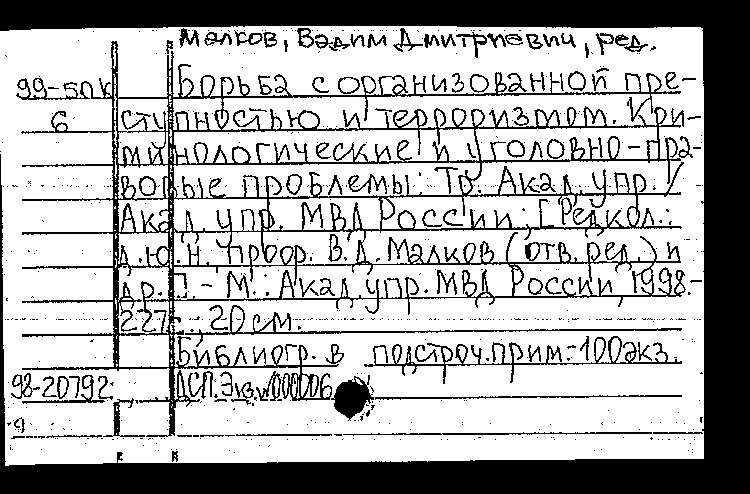 Малков, Вадим Дмитриевич, ред.
99-5ПК Борьба с организованной пре-
6 ступностью и терроризмом. Кри-
минологические и уголовно-пра-
вовые проблемы: Тр. Акад. упр. /
Акад. упр. МВД России; [Редкол.:
д.ю.н., проф. В.Д. Малков (отв. ред.) и
др.]. - М.: Акад. упр. МВД России, 1998.-
227с.; 20см.
Библиогр. в подстроч. прим.-100экз.
98-20792 ДСП. Экз.N000006
9